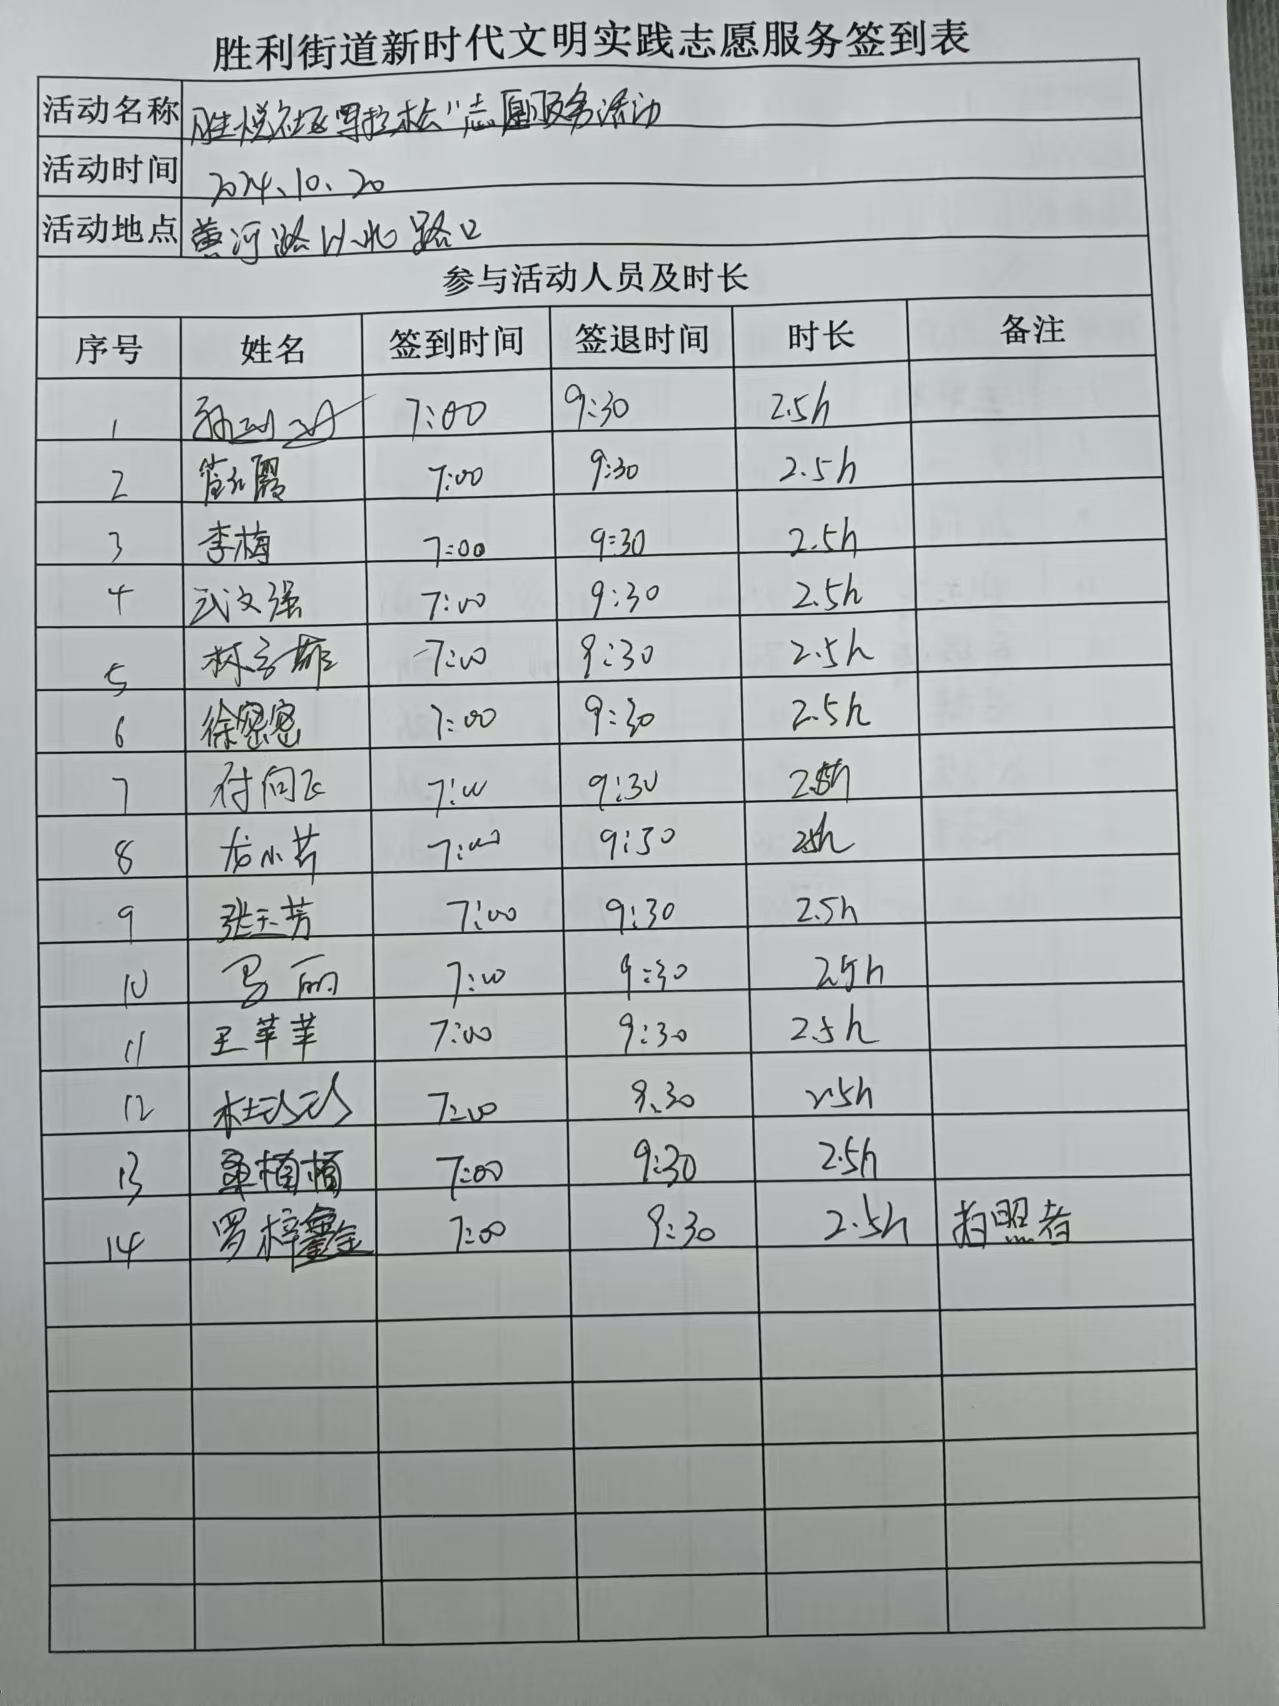 胜利街道新时代文明实践志愿服务签到表
活动名称 胜悦社区"马拉松"志愿服务活动
活动时间 2024.10.20
活动地点 黄河路以北路口
参与活动人员及时长
序号 姓名 签到时间 签退时间 时长 备注
1 7:00 9:30 2.5h
2 7:00 9:30 2.5h
3 李梅 7:00 9:30 2.5h
4 武文强 7:00 9:30 2.5h
5 7:00 9:30 2.5h
6 徐密密 7:00 9:30 2.5h
7 付向飞 7:00 9:30 2.5h
8 龙小芳 7:00 9:30 2.5h
9 张玉芳 7:00 9:30 2.5h
10 马丽 7:00 9:30 2.5h
11 王苹苹 7:00 9:30 2.5h
12 7:00 9:30 2.5h
13 7:00 9:30 2.5h
14 罗梓鑫 7:00 9:30 2.5h 拍照者